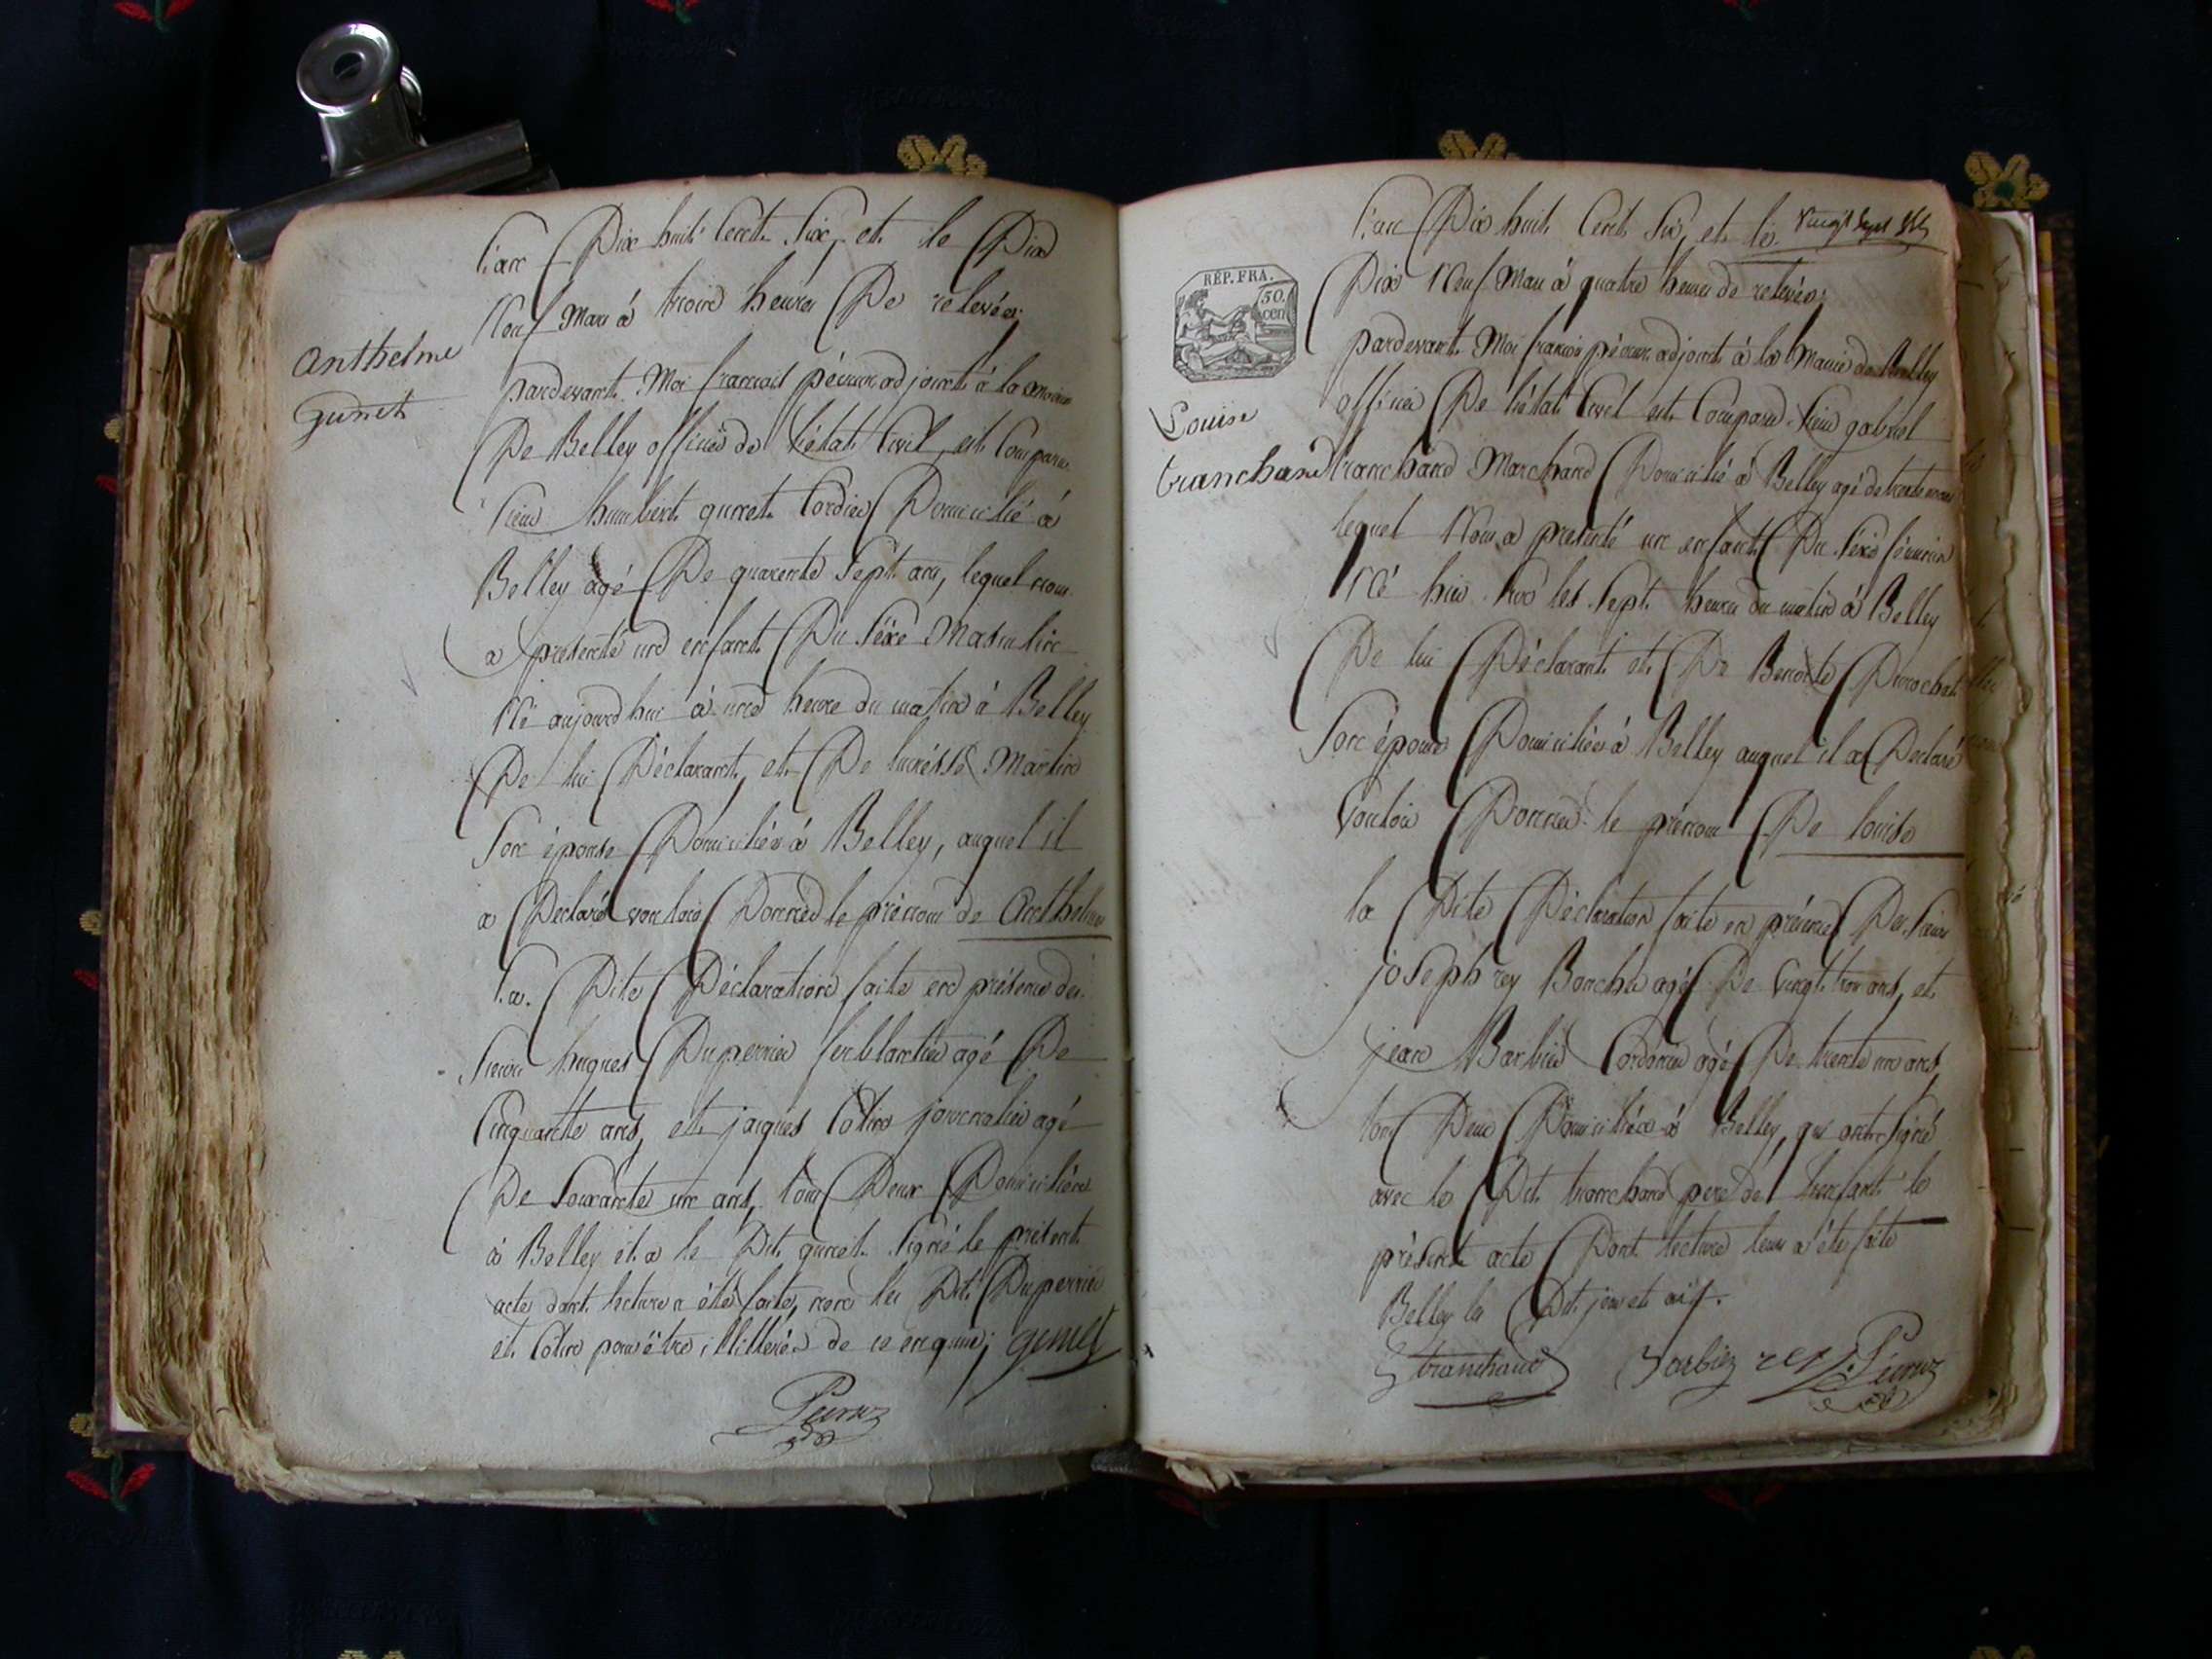 Anthelme
Gunet
l'an Dix huit Cent Six, et le Dix
Neuf Mars à trois heures De relevée;
pardevant Moi francois pécruz adjoint à la mairie
De Belley officier de l'état Civil, est Comparu
Sieur humbert gunet Cordier Domicilié à
Belley agé De quarente Sept ans, lequel nous
a presenté un enfant Du Séxe Masculin
Né aujourd'hui à une heure du matin à Belley
De lui Déclarant, et De lucrésse Martin
Son épouse Domiciliée à Belley, auquel il
a Declaré vouloir Donner le prénom de Anthelme
la Dite Déclaration faite en présence des
Sieurs hugues Duperrier ferblantier agé De
Cinquante ans, et jacques Cotin journalier agé
De Soixante un ans, tous Deux Domiciliés
à Belley et a le Dit gunet Signé le présent
acte dont lecture a été faite, non les Dits Duperrier
et Cotin pour être illitérés de ce enquis; gunet
Pecruz
REP. FRA.
50.
cen
Louise
tranchand
l'an Dix huit Cent Six, et le vingt Sept
Dix Neuf Mars à quatre heures de relevée;
pardevant Moi francois pécruz adjoint à la Mairie de Belley
officier De l'état Civil est Comparu Sieur gabriel
tranchand Marchand Domicilié à Belley agé de trente
lequel Nous a presenté un enfant Du Séxe féminin
Né hier Sur les Sept heures du matin à Belley
De lui Déclarant et De Benoite
Son épouse Domiciliée à Belley auquel il a Declaré
Vouloir Donner le prénom De louise
la Dite Déclaration faite en présence Des Sieurs
joseph rey agé De Vingt trois ans, et
jean Barbier Cordonier agé De trente un ans,
tous Deux Domiciliés à Belley, qui ont Signé
avec le Dit tranchand pere de l'enfant le
présent acte Dont lecture leur a été faite
Belley les Dits jour et an.
tranchand Barbier rey Pecruz